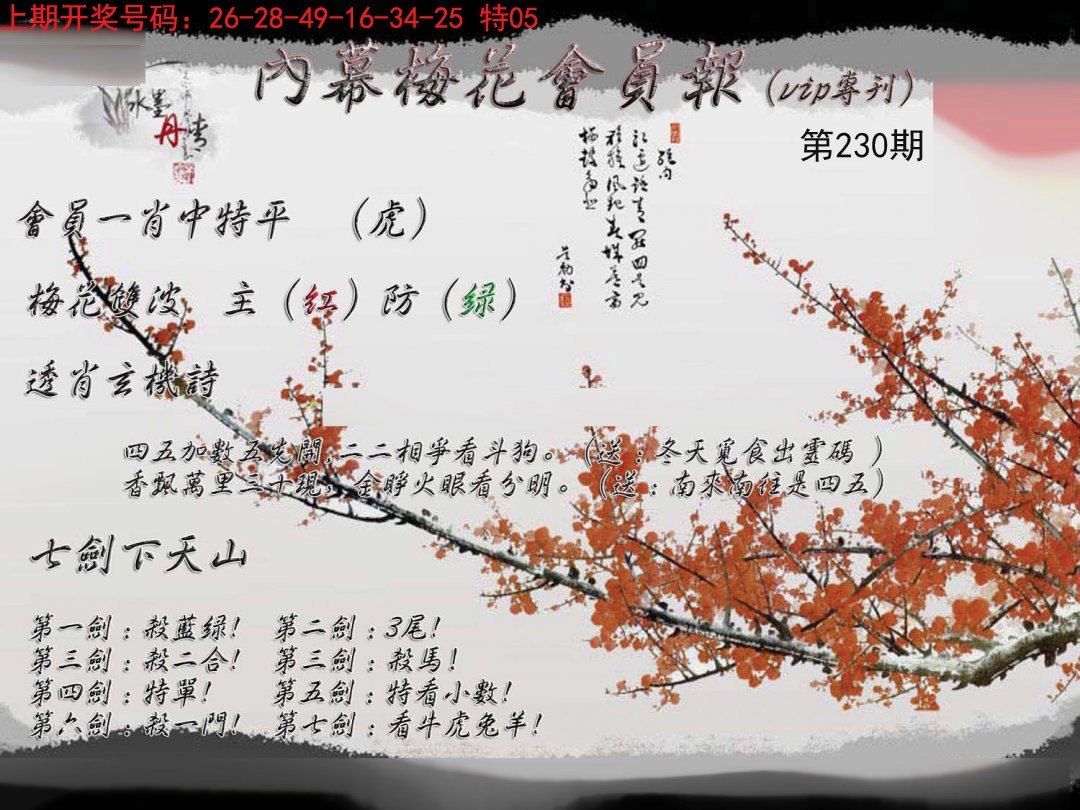 上期开奖号码：26-28-49-16-34-25 特05
內幕梅花會員報（vip專刊）
第230期
水墨丹青
會員一肖中特平 （虎）
梅花雙波 主（红）防（绿）
透肖玄機詩
四五加數五先開，二二相爭看斗狗。（送：冬天覓食出靈碼 ）
香飄萬里三十現，金睁火眼看分明。（送：南來南往是四五）
七劍下天山
第一劍：殺藍绿！ 第二劍：3尾！
第三劍：殺二合！ 第三劍：殺馬！
第四劍：特單！ 第五劍：特看小數！
第六劍：殺一門！ 第七劍：看牛虎兔羊！